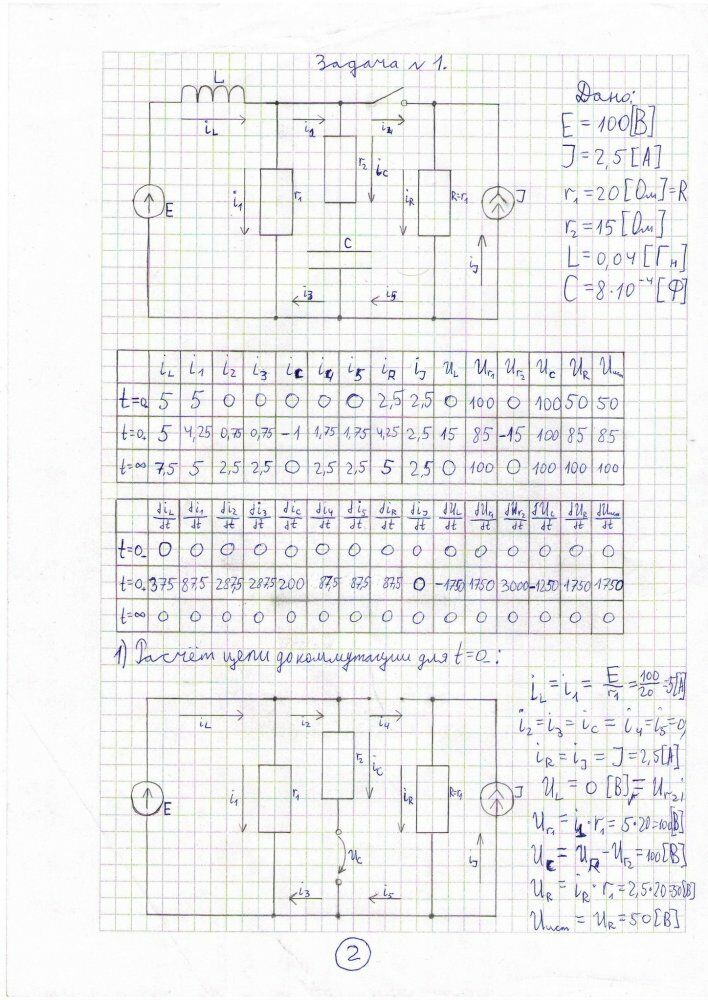 Задача № 1.
L
iL
i2
i4
E
i1
r1
r2
iC
C
iR
R=r1
J
iJ
i3
i5
Дано:
E = 100 [В]
J = 2,5 [А]
r1 = 20 [Ом] = R
r2 = 15 [Ом]
L = 0,04 [Гн]
C = 8·10⁻⁴ [Ф]
iL i1 i2 i3 iC i4 i5 iR iJ UL Ur1 Ur2 UC UR Uист
t=0- 5 5 0 0 0 0 0 2,5 2,5 0 100 0 100 50 50
t=0+ 5 4,25 0,75 0,75 -1 1,75 1,75 4,25 2,5 15 85 -15 100 85 85
t=∞ 7,5 5 2,5 2,5 0 2,5 2,5 5 2,5 0 100 0 100 100 100
diL/dt di1/dt di2/dt di3/dt diC/dt di4/dt di5/dt diR/dt diJ/dt dUL/dt dUr1/dt dUr2/dt dUC/dt dUR/dt dUист/dt
t=0- 0 0 0 0 0 0 0 0 0 0 0 0 0 0 0
t=0+ 375 87,5 287,5 287,5 200 87,5 87,5 87,5 0 -1750 1750 3000 -1250 1750 1750
t=∞ 0 0 0 0 0 0 0 0 0 0 0 0 0 0 0
1) Расчёт цепи до коммутации для t=0-:
iL
i2
i4
E
i1
r1
r2
iC
UC
iR
R=r1
J
iJ
i3
i5
iL = i1 = E/r1 = 100/20 = 5[А]
i2 = i3 = iC = i4 = i5 = 0;
iR = iJ = J = 2,5 [А]
UL = 0 [В] = Ur2;
Ur1 = i1·r1 = 5·20=100[В]
UC = UR - Ur2 = 100 [В]
UR = iR·r1 = 2,5·20=50[В]
Uист = UR = 50 [В]
2